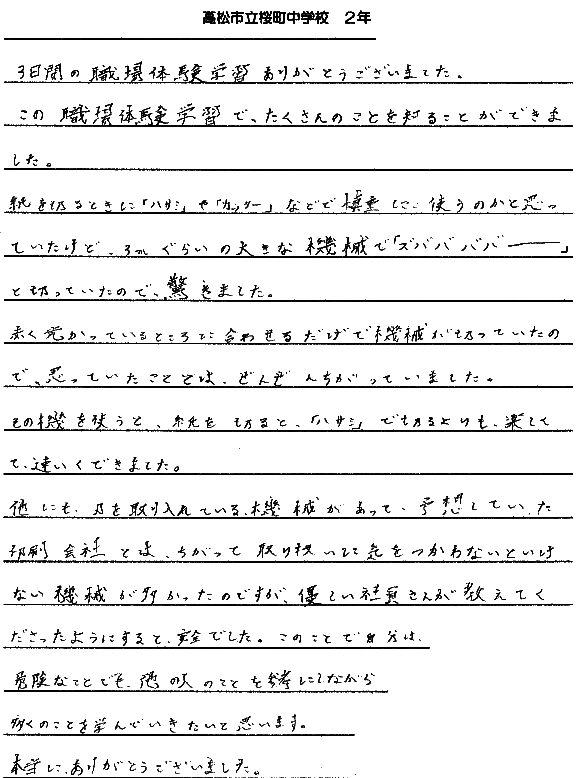 高松市立桜町中学校　2年
3日間の職場体験学習ありがとうございました。
この職場体験学習で、たくさんのことを知ることができま
した。
紙を切るときに「ハサミ」や「カッター」などで慎重に、使うのかと思っ
ていたけど、3mぐらいの大きな機械で「ズババババー――」
と切っていたので、驚きました。
赤く光かっているところに合わせるだけで機械が切っていたの
で、思っていたこととは、ぜんぜんちがっていました。
その機を使うと、紙を切ると、「ハサミ」で切るよりも、楽して
て、速いくできました。
他にも、刃を取り入れている機械があって、予想していた
印刷会社とは、ちがって取り扱いに気をつかわないといけ
ない機械が多かったのですが、優しい社員さんが教えてく
ださったようにすると、安全でした。このことで自分は、
危険なことでも、他の人のことを参考にしながら
多くのことを学んでいきたいと思います。
本当に、ありがとうございました。